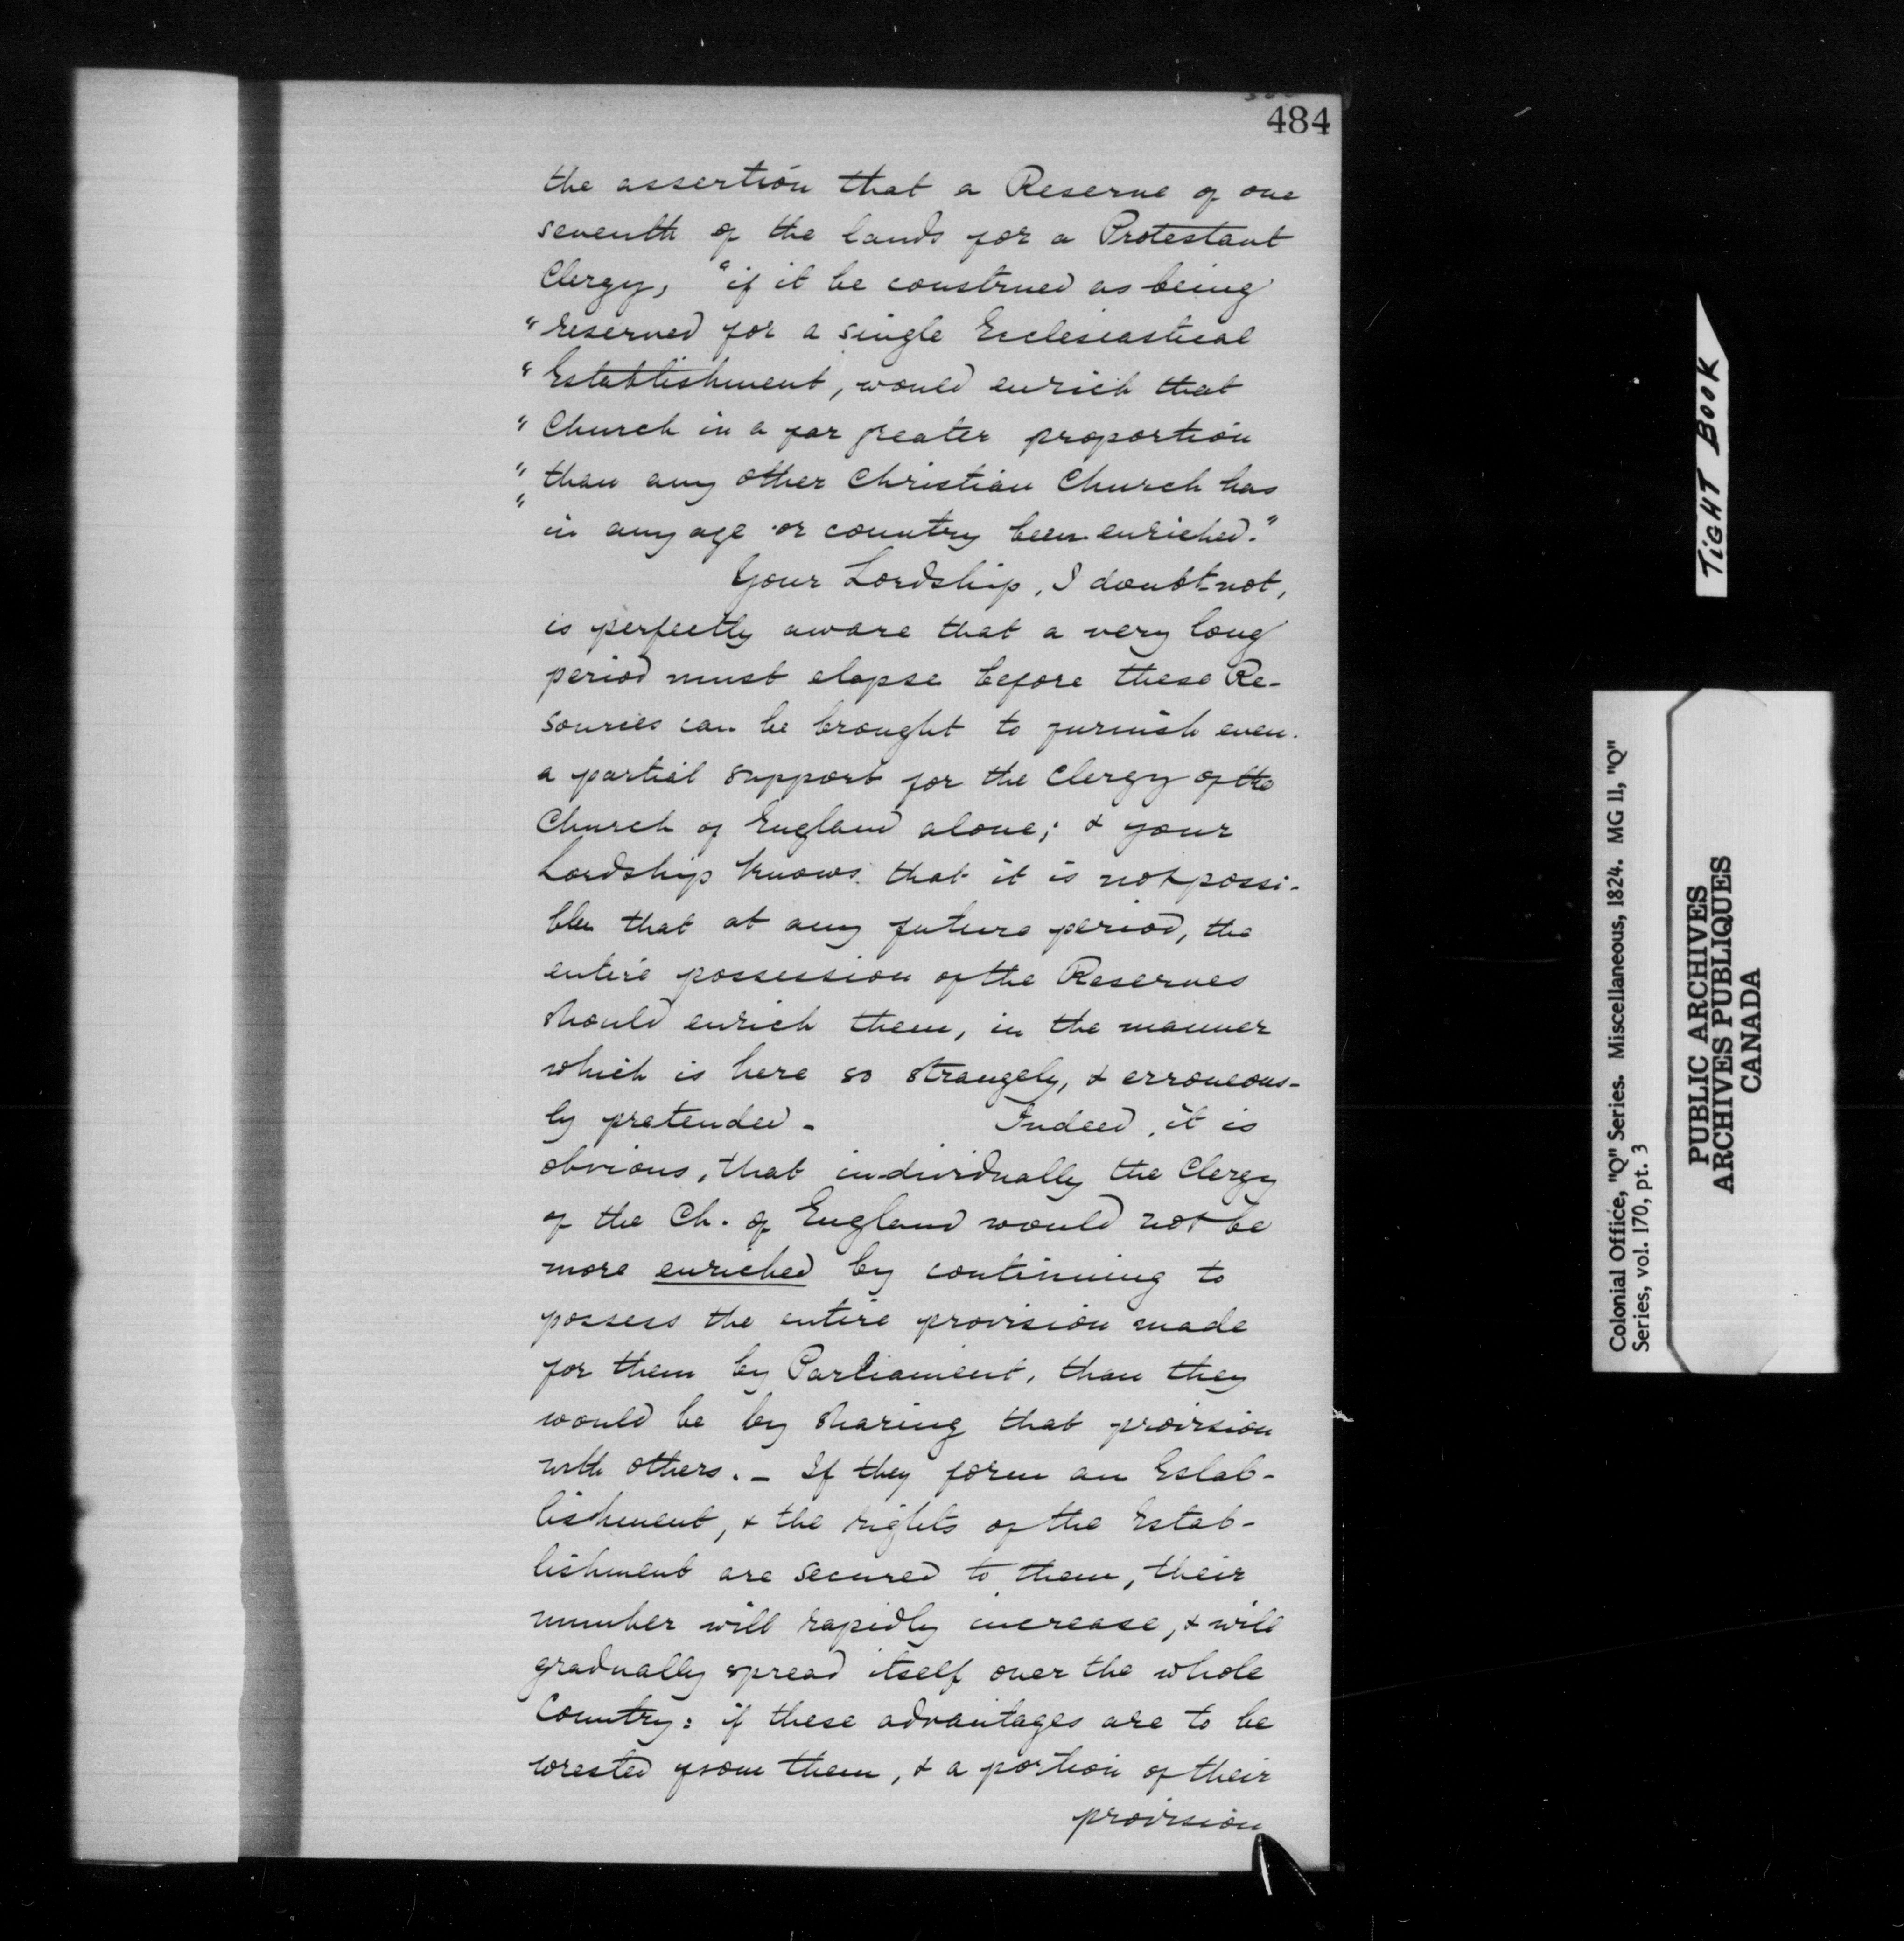 484
the assertion that a Reserve of one
seventh of the lands for a Protestant
Clergy, "if it be construed as being
"reserved for a single Ecclesiastical
"Establishment, would enrich that
"Church in a far greater proportion
"than any other Christian Church has
"in any age or country been enriched."
Your Lordship, I doubt not,
is perfectly aware that a very long
period must elapse before these Re-
sources can be brought to furnish even
a partial support for the Clergy of the
Church of England alone; & your
Lordship knows that it is not possi-
ble that at any future period, the
entire possession of the Reserves
should enrich them, in the manner
which is here so strangely, & erroneous-
ly pretended - Indeed, it is
obvious, that individually the Clergy
of the Ch. of England would not be
more enriched by continuing to
possess the entire provision made
for them by Parliament, than they
would be by sharing that provision
with others. - If they form an Estab-
lishment, & the rights of the Estab-
lishment are secured to them, their
number will rapidly increase, & will
gradually spread itself over the whole
Country: if these advantages are to be
wrested from them, & a portion of their
provision
TIGHT BOOK
Colonial Office, "Q" Series. Miscellaneous, 1824. MG 11, "Q"
Series, vol. 170, pt. 3
PUBLIC ARCHIVES
ARCHIVES PUBLIQUES
CANADA